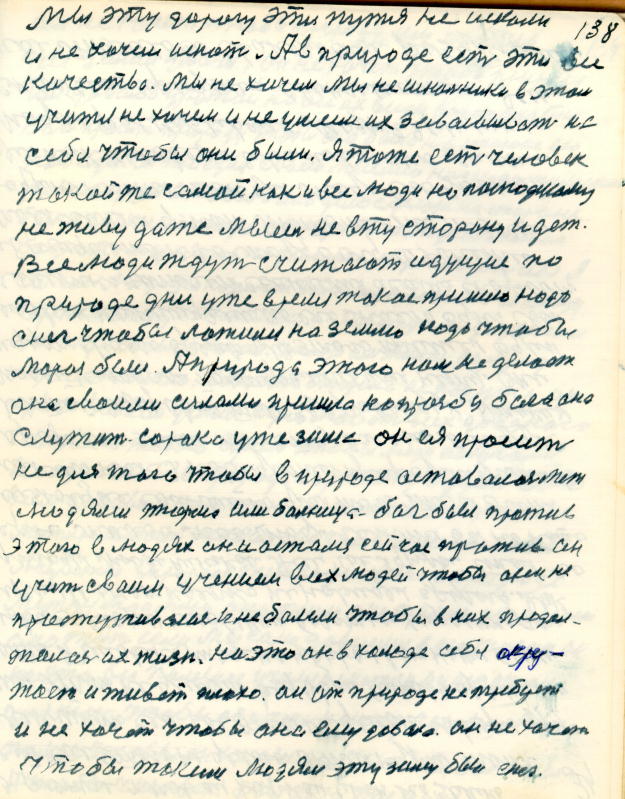 138
Мы эту дорогу эти путя не искали
и не хочем искат. А в природе есть эти все
качества. Мы не хочем мы не школники в этом
учитя не хочем и не умеем их заваевыват на
себя чтобы они были. Я тоже ест человек
такой же самой как и все люди но
не живу даже мысли не в ту сторону идет.
Все люди ждут считают идущие по
природе дни уже время такое пришло надо
снег чтобы ложили на землю надо чтобы
мороз были. А природа этого нам не делает
она своими силами пришла по бога она
служит сорака уже зима он ея просит
не для того чтобы в природе оставался меж
людями тюрма или болница бог был против
этого в людях он и остался сейчас против он
учит своим учением всех людей чтобы они не
простуживалис и не болели чтобы в них продол-
жалас их жизн. На это он в холоде себя окру-
жает и живет плохо. он от природе не требует
и не хочет чтобы она ему довала. он не хочет
чтобы таким людям эту зиму был снег.